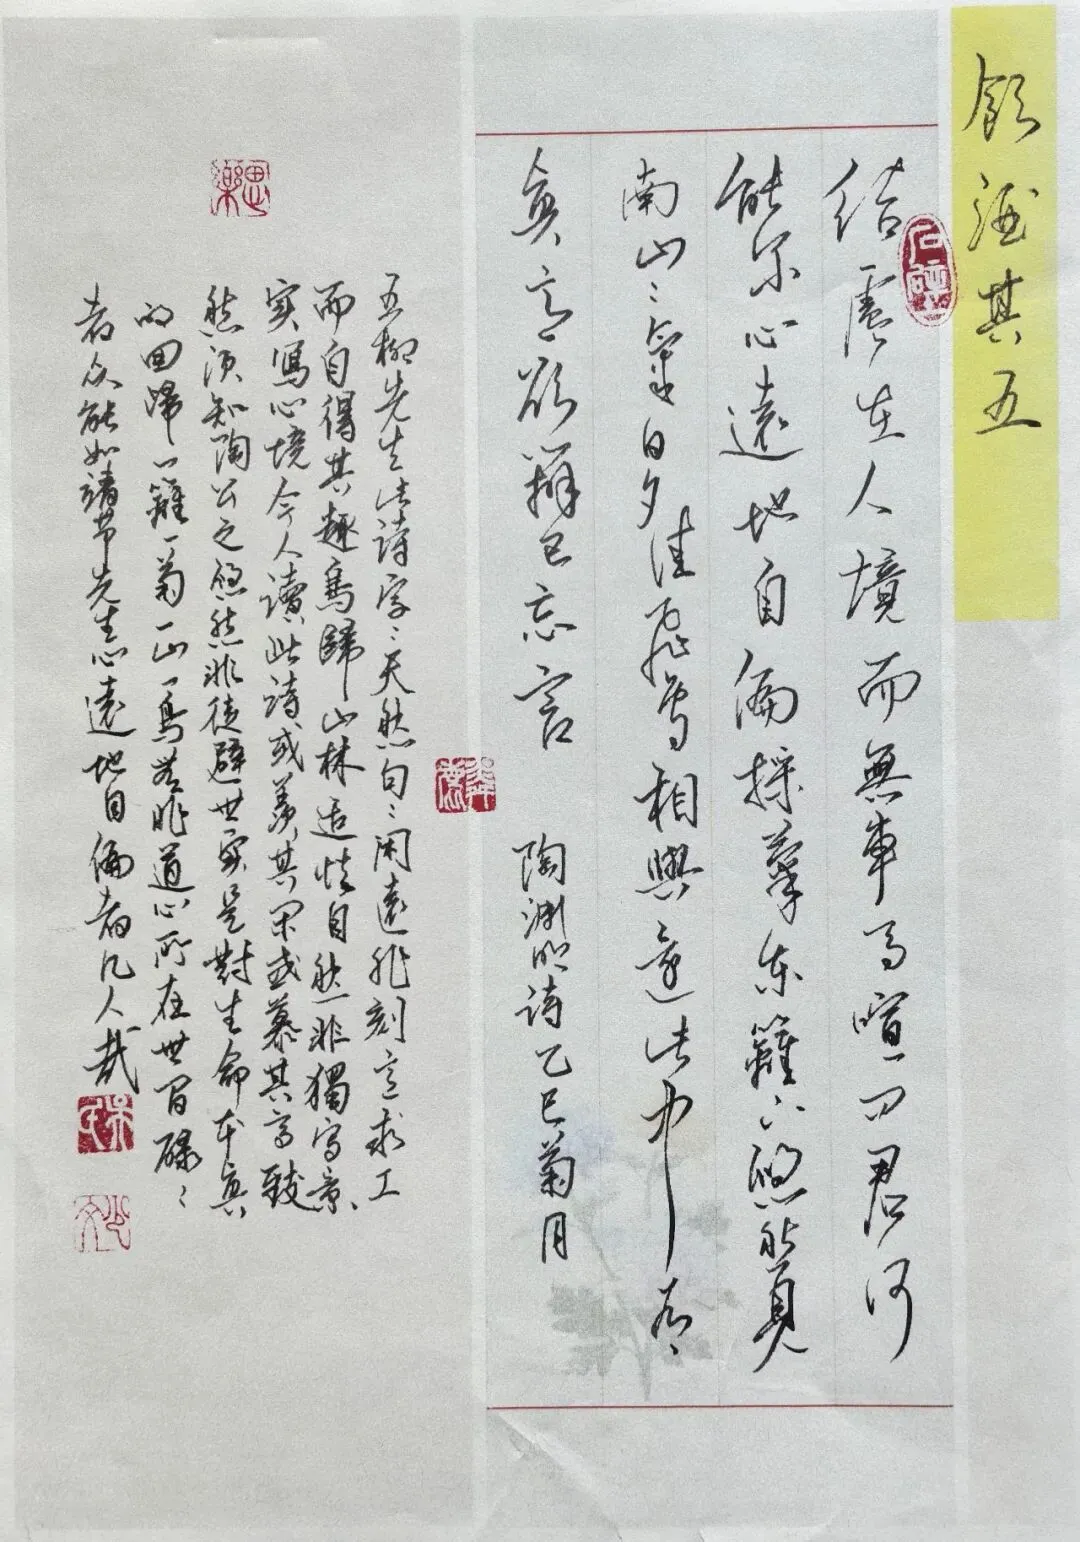 飲酒其五
结廬在人境而無車馬喧问君何
能尔心遠地自偏採菊东籬下悠然見
南山山氣日夕佳飛鸟相與還此中有
真意欲辯已忘言
陶渊明诗乙巳菊月
五柳先生此詩字字天然句句闲遠非刻意求工
而自得其趣鸟歸山林适情自然非獨写景
实寫心境今人讀此诗或羡其闲或慕其高致
然须知陶公之悠然非徒避世实是對生命本真
的回歸一籬一菊一山一鳥皆非道心所在世间碌碌
者众能如靖节先生心遠地自偏者几人哉
思樂